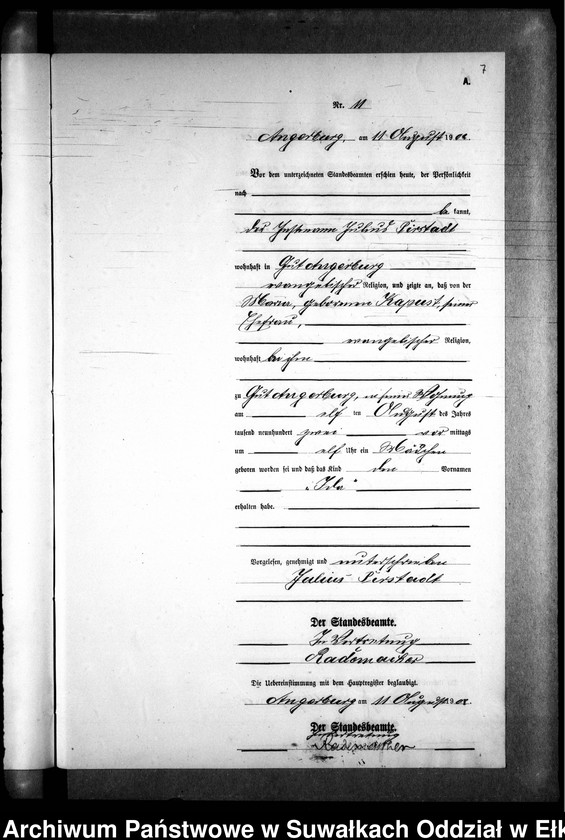 7
A.
Nr. 11
Angerburg, am 11 August 1902
Vor dem unterzeichneten Standesbeamten erschien heute, der Persönlichkeit
nach
be kannt,
der Instmann Julius
wohnhaft in Gut Angerburg
evangelischer Religion, und zeigte an, daß von der
Maria, geborenen Kapust, seiner
Ehefrau,
evangelischer Religion,
wohnhaft bei ihm
zu Gut Angerburg, in seiner Wohnung
am elf ten August des Jahres
tausend neunhundert zwei vor mittags
um elf Uhr ein Mädchen
geboren worden sei und daß das Kind den Vornamen
„Ida“
erhalten habe.
Vorgelesen, genehmigt und unterschrieben
Julius
Der Standesbeamte.
In Vertretung
Rademacher
Die Uebereinstimmung mit dem Hauptregister beglaubigt.
Angerburg am 11 August 1902
Der Standesbeamte.
In Vertretung
Rademacher
Archiwum Państwowe w Suwałkach Oddział w Ełk